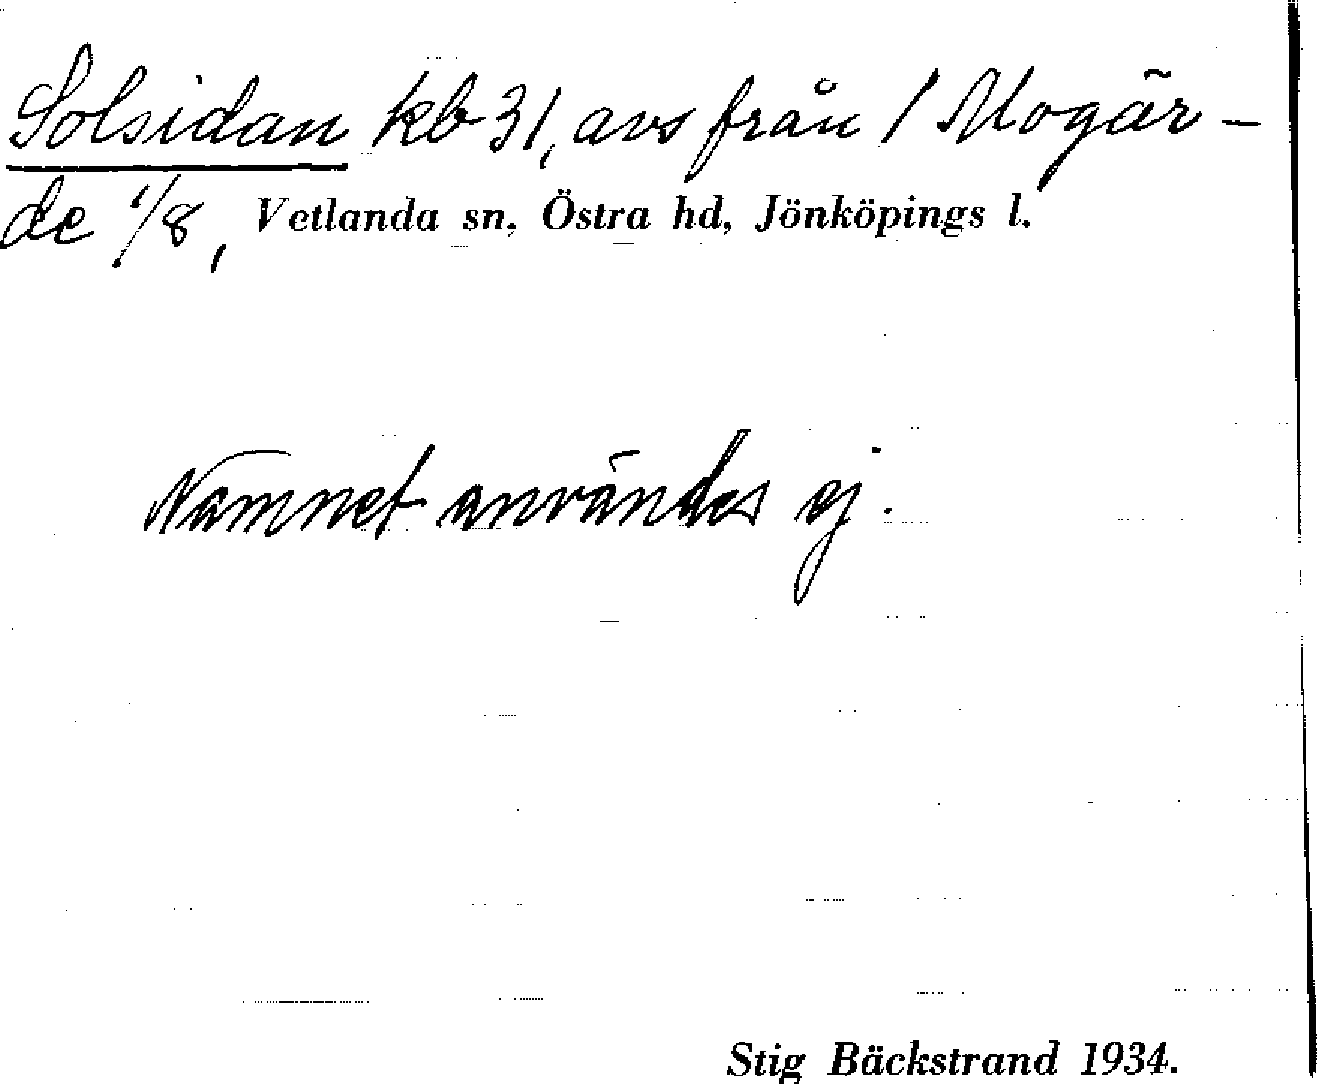 Solsidan kb 31, avs från / Mogär-
de 1/8, Vetlanda sn, Östra hd, Jönköpings l.
Namnet användes ej.
Stig Bäckstrand 1934.